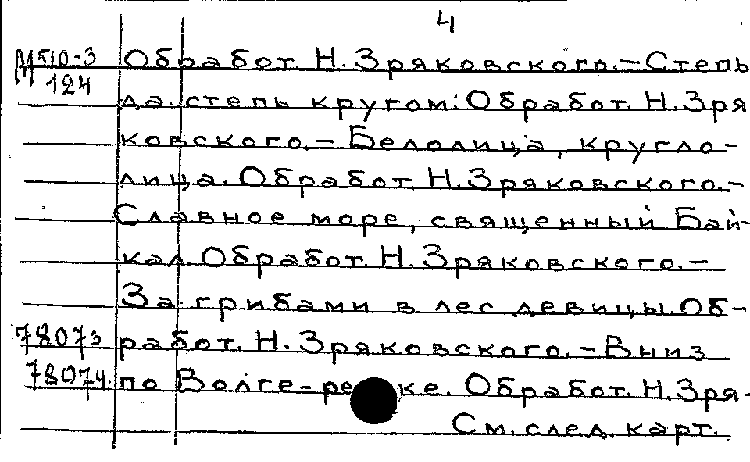 4
М510-3 Обработ. Н. Зряковского.-Степь
124 да степь кругом. Обработ. Н. Зря
ковского.- Белолица, кругло-
лица. Обработ. Н. Зряковского.-
Славное море, священный Бай-
кал. Обработ. Н. Зряковского.-
За грибами в лес девицы. Об-
78073 работ. Н. Зряковского.-Вниз
78074 по Волге-ре ке. Обработ. Н. Зря-
См. след. карт.